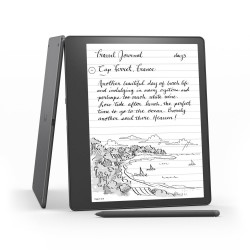 Travel Journal days
Cap Ferret, France
Another beautiful day of beach life
and indulging in many oysters and
perhaps too much white wine.
Low tide, after lunch, the perfect
time to go to the ocean. Barely
another soul there. Heaven!